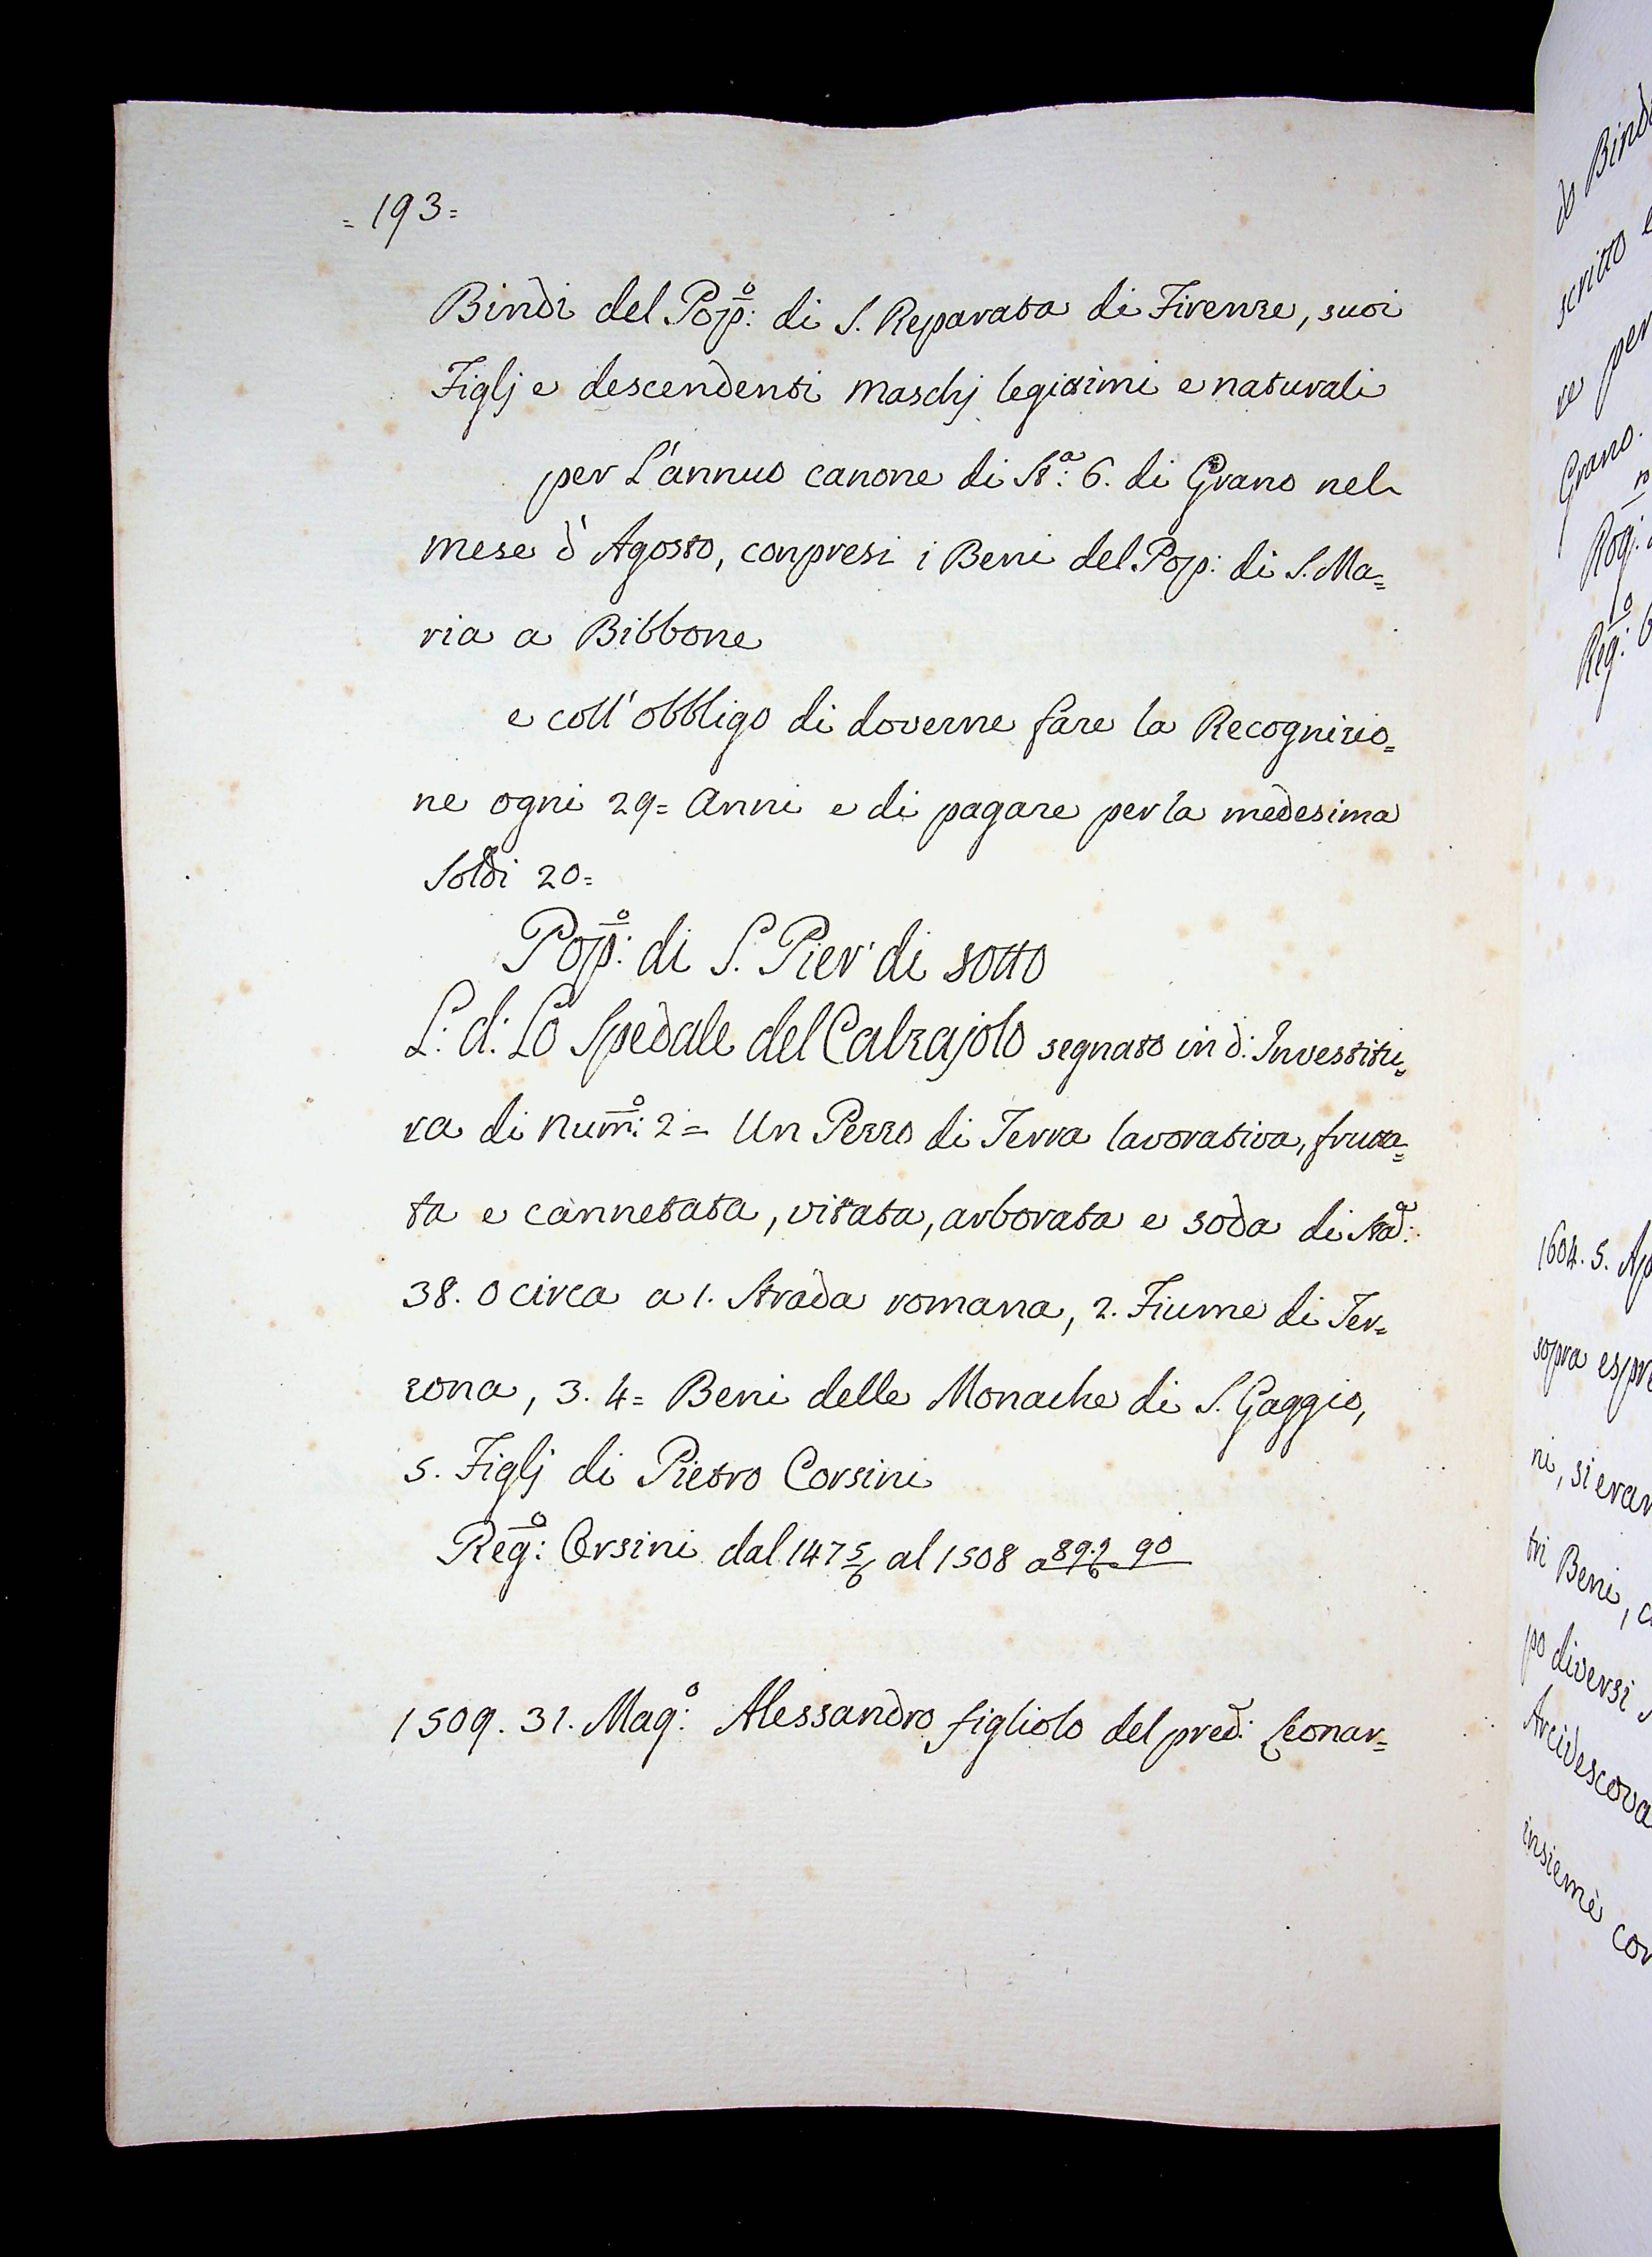 = 193 =
Bindi del Pop:º di S. Reparata di Firenze, suoi
Figlj e descendenti maschj legittimi e naturali
per L'annuo canone di St:ª 6. di Grano nel
mese d'Agosto, conpresi i Beni del Pop: di S. Ma=
ria a Bibbone
e coll'obbligo di doverne fare la Recognizio=
ne ogni 29= Anni e di pagare per la medesima
Soldi 20=
Pop:º di S. Pier di sotto
L: d: Lo Spedale del Calzajolo segnato in d: Investitu=
ra di Num:º 2 = Un Pezzo di Terra lavorativa, frutta=
ta e cannetata, vitata, arborata e soda di Stad:
38. 0 circa a 1. Strada romana, 2. Fiume di Ter=
zona, 3. 4= Beni delle Monache di S. Gaggio,
5. Figlj di Pietro Corsini
Reg:º Orsini dal 147 5/6 al 1508 a 90
1509. 31. Mag:º Alessandro figliolo del pred: Leonar=
do Bind
scritto e
re per
Grano.
Rog:
Reg:º 6
1604. 5. Ap
sopra espre
ni, si eran
tri Beni, c
po diversi
Arcivescova
insieme con